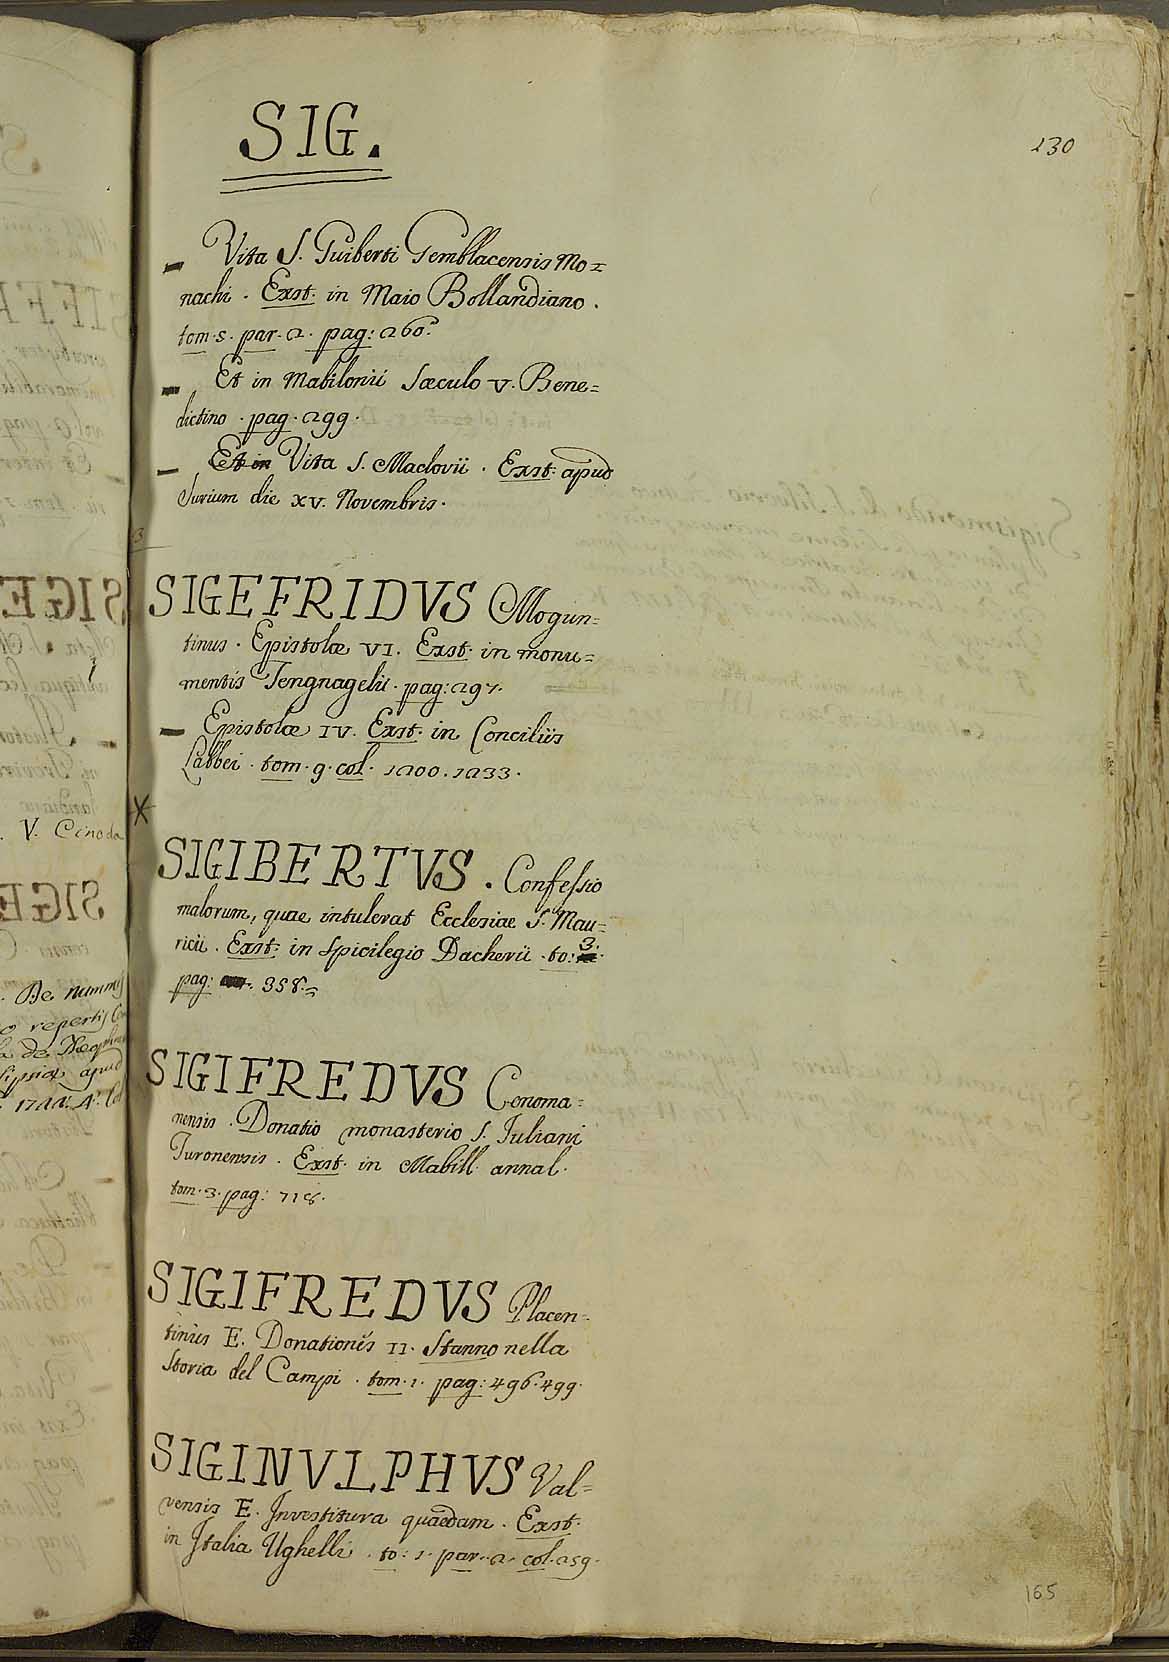 SIG.
130
– Vita S. Guiberti Gemblacensis Mo=
nachi. Exst. in Maio Bollandiano.
tom. 5. par. 2. pag: 260.
– Et in Mabilonii Sæculo V. Bene=
dictino. pag. 299.
– Et in Vita S. Maclovii. Exst: apud
Surium die XV. Novembris.
SIGEFRIDVS Mogun=
tinus. Epistolæ VI. Exst. in monu=
mentis Tengnagelii. pag: 297.
– Epistolæ IV. Exst. in Conciliis
Labbei. tom. 9. col. 1200. 1233.
*
SIGIBERTVS. Confessio
malorum, quae intulerat Ecclesiae S. Mau=
ricii. Exst: in Spicilegio Dacherii. to: 3.
pag: 358.
SIGIFREDVS Cenoma=
nensis. Donatio monasterio S. Juliani
Turonensis. Exst. in Mabill. annal.
tom. 3. pag: 718.
SIGIFREDVS Placen=
tinus E. Donationes II. Stanno nella
Storia del Campi. tom. 1. pag: 496. 499.
SIGINVLPHVS Val=
vensis E. Investitura quaedam. Exst.
in Italia Ughelli. to: 1. par. 2. col. 259.
165
V. Cinoda
. De nummis
repertis
apud